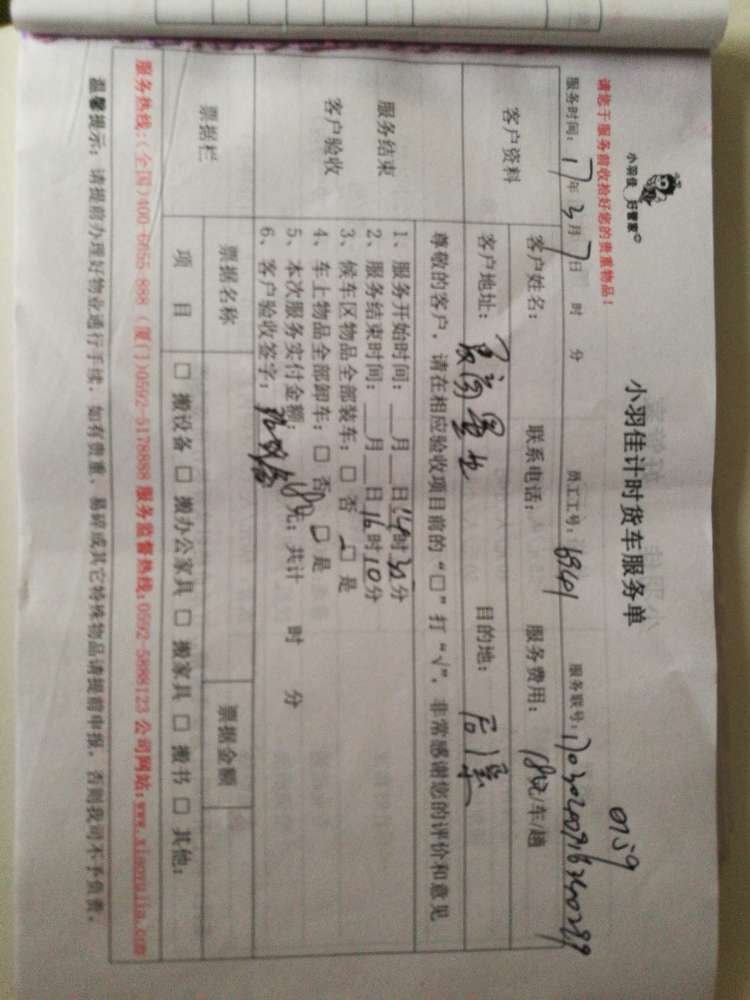 请您于服务前收拾好您的贵重物品！
小羽佳 好管家
小羽佳计时货车服务单
0159
服务时间：17年3月7日 时 分 员工工号：6941 服务联号：
客户资料
客户姓名： 联系电话： 服务费用：180元/车/趟
客户地址： 目的地：后溪
服务结束
客户验收
尊敬的客户，请在相应验收项目前的“□”打“√”，非常感谢您的评价和意见
1、服务开始时间：__月__日14时30分
2、服务结束时间：__月__日16时10分
3、候车区物品全部装车：□ 否 □ 是
4、车上物品全部卸车：□ 否 □ 是
5、本次服务实付金额：180元；共计 时 分
6、客户验收签字：
票据栏
票据名称 票据金额
项 目 □ 搬设备 □ 搬办公家具 □ 搬家具 □ 搬书 □ 其他：
服务热线：(全国)400-6655-888 (厦门)0592-5178888 服务监督热线：0592-5888123 公司网站：www.xiaoyujia.com
温馨提示：请提前办理好物业通行手续，如有贵重、易碎或其它特殊物品请提前申报，否则我司不予负责。